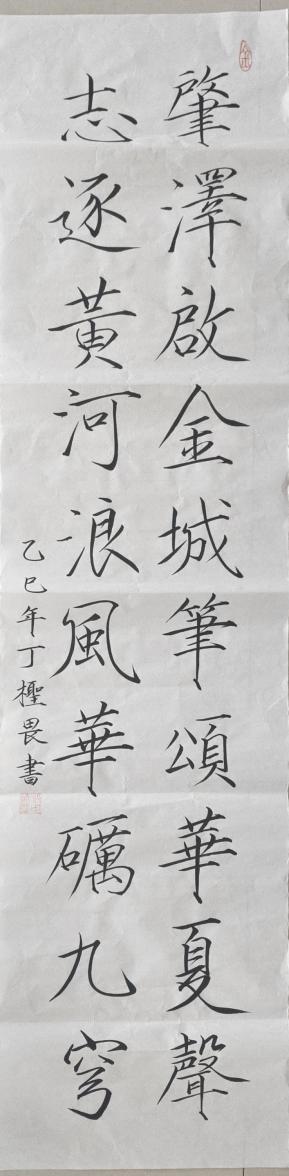 肇澤啟金城筆頌華夏聲
志逐黃河浪風華礪九穹
乙巳年丁檉畏書